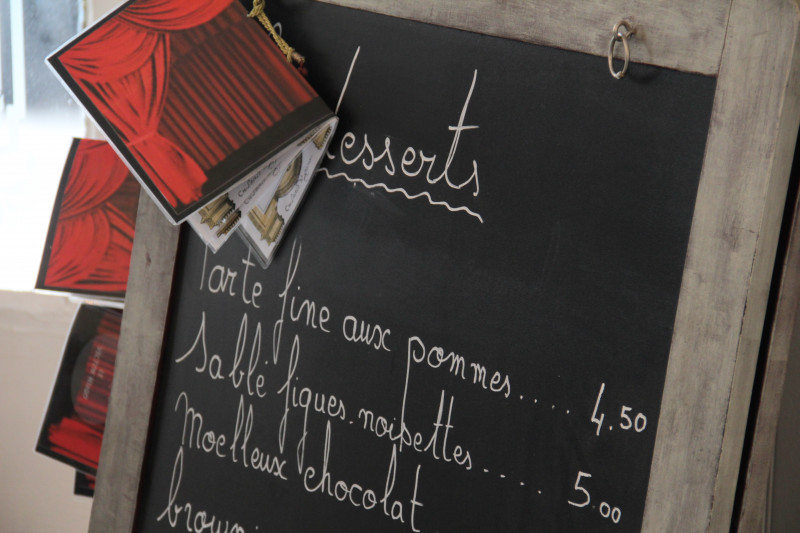 desserts
Tarte fine aux pommes..... 4.50
Sablé figues.noisettes.... 5.00
Moelleux chocolat